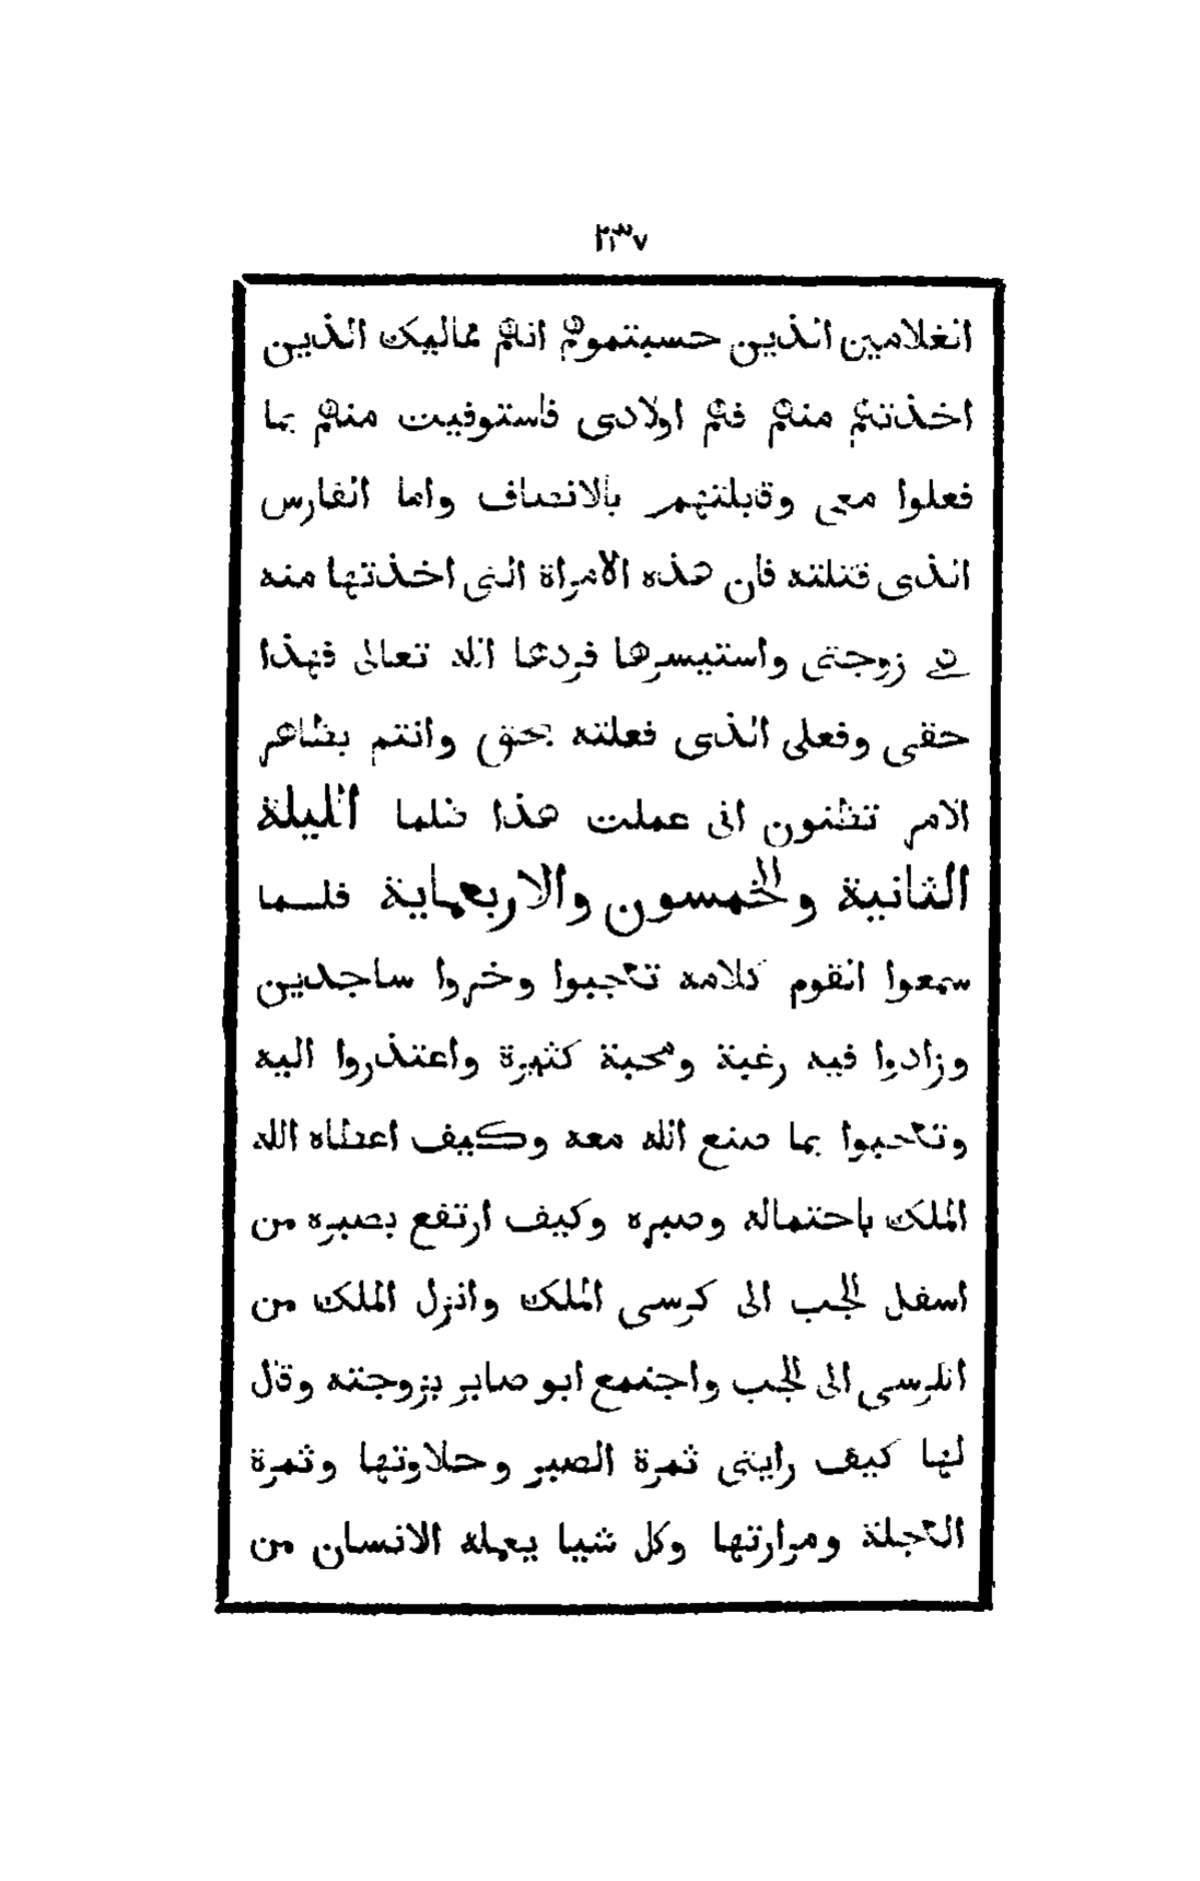 ٢٣٧
الغلامين الذين حسبتموهم انهم مماليك الذين
اخذتهم منهم فهم اولادى فاستوفيت منهم بما
فعلوا معى وقابلتهم بالانصاف واما الفارس
الذى قتلته فان هذه الامراة التى اخذتها منه
هى زوجتى واستيسرها فردها الله تعالى فهذا
حقى وفعلى الذى فعلته بحق وانتم بظاهر
الامر تظنون انى عملت هذا ظلما الليلة
الثانية والخمسون والاربعماية فلما
سمعوا القوم كلامه تعجبوا وخروا ساجدين
وزادوا فيه رغبة ومحبة كثيرة واعتذروا اليه
وتعجبوا بما صنع الله معه وكيف اعطاه الله
الملك باحتماله وصبره وكيف ارتفع بصبره من
اسفل الجب الى كرسى الملك وانزل الملك من
الكرسى الى الجب واجتمع ابو صابر بزوجته وقال
لها كيف رايتى ثمرة الصبر وحلاوتها وثمرة
العجلة ومرارتها وكل شيا يعمله الانسان من